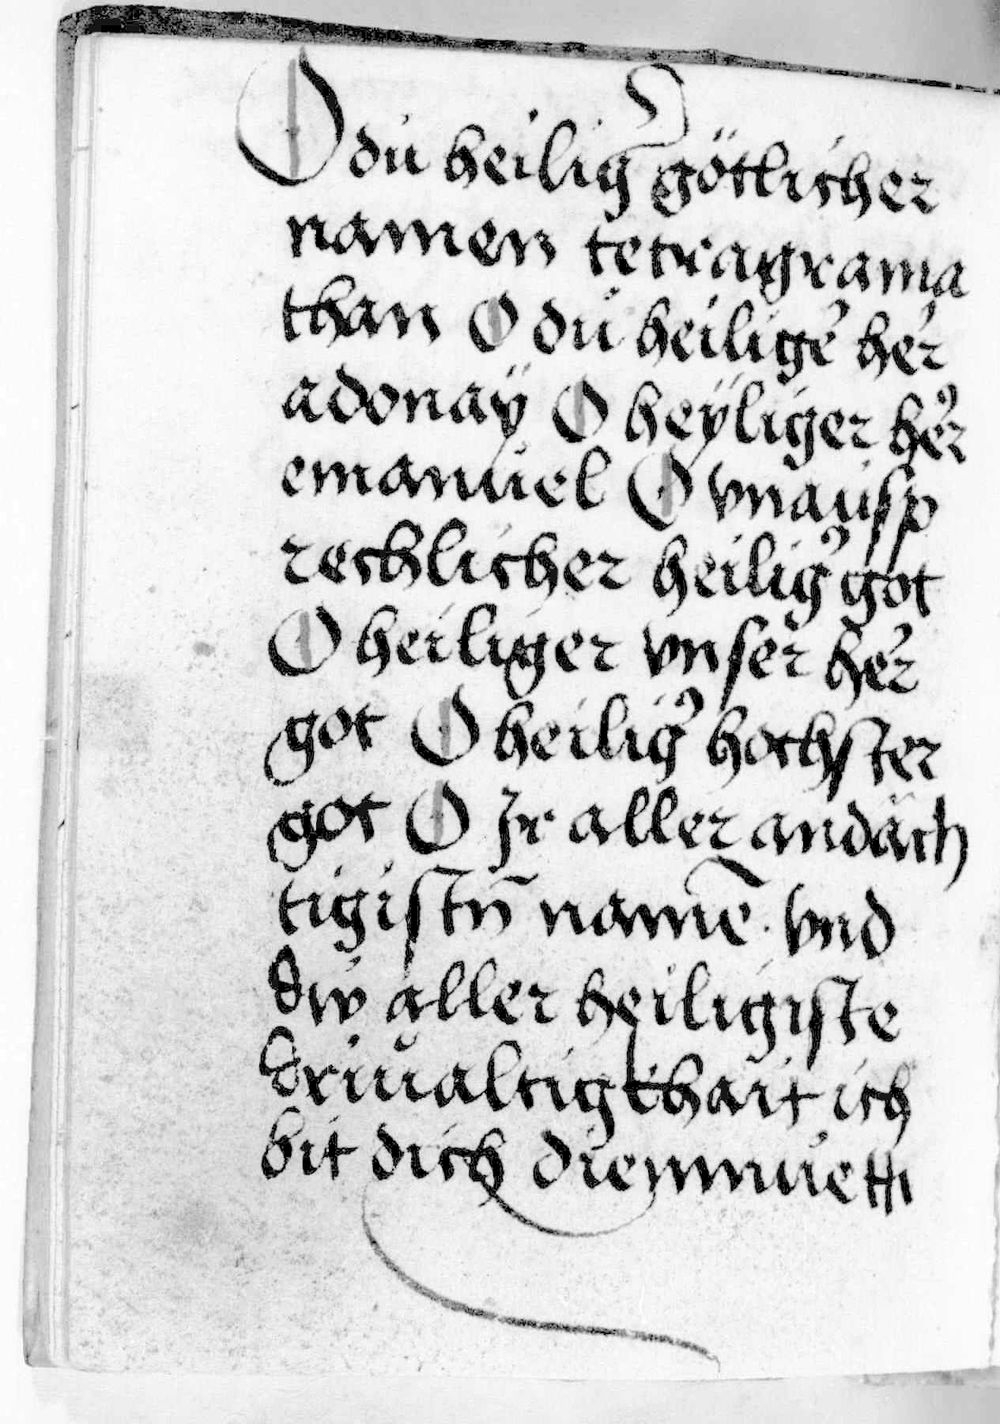 O du heilig' götlicher
namen tetragrama
than O dů heilige' her'
adonaÿ O heÿliger her'
emanuel O vnausp
rechlicher heilig' got
O heiliger vnser her'
got O heilig' hochster
got O Jr aller andäch
tigistn̄ namē vnd
diw aller heiligiste
driualtigkhait ich
bit dich diemmuetti